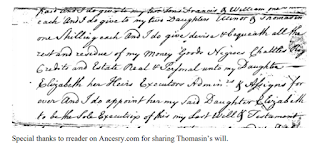 paid And I do give to my two Sons Francis & William one
each And I do give to my two Daughters Elinor & Thomasin
one Shilling each And I do give devise & bequeath all the
rest and residue of my Money Goods Negroes Chattles
Credits and Estate Real & Personal unto my Daughter
Elizabeth her Heirs Executors Admin.rs & Assigns for
ever And I do appoint her my said Daughter Elizabeth
to be the Sole Executrix of this my Last Will & Testament
Special thanks to rreader on Ancesry.com for sharing Thomasin's will.